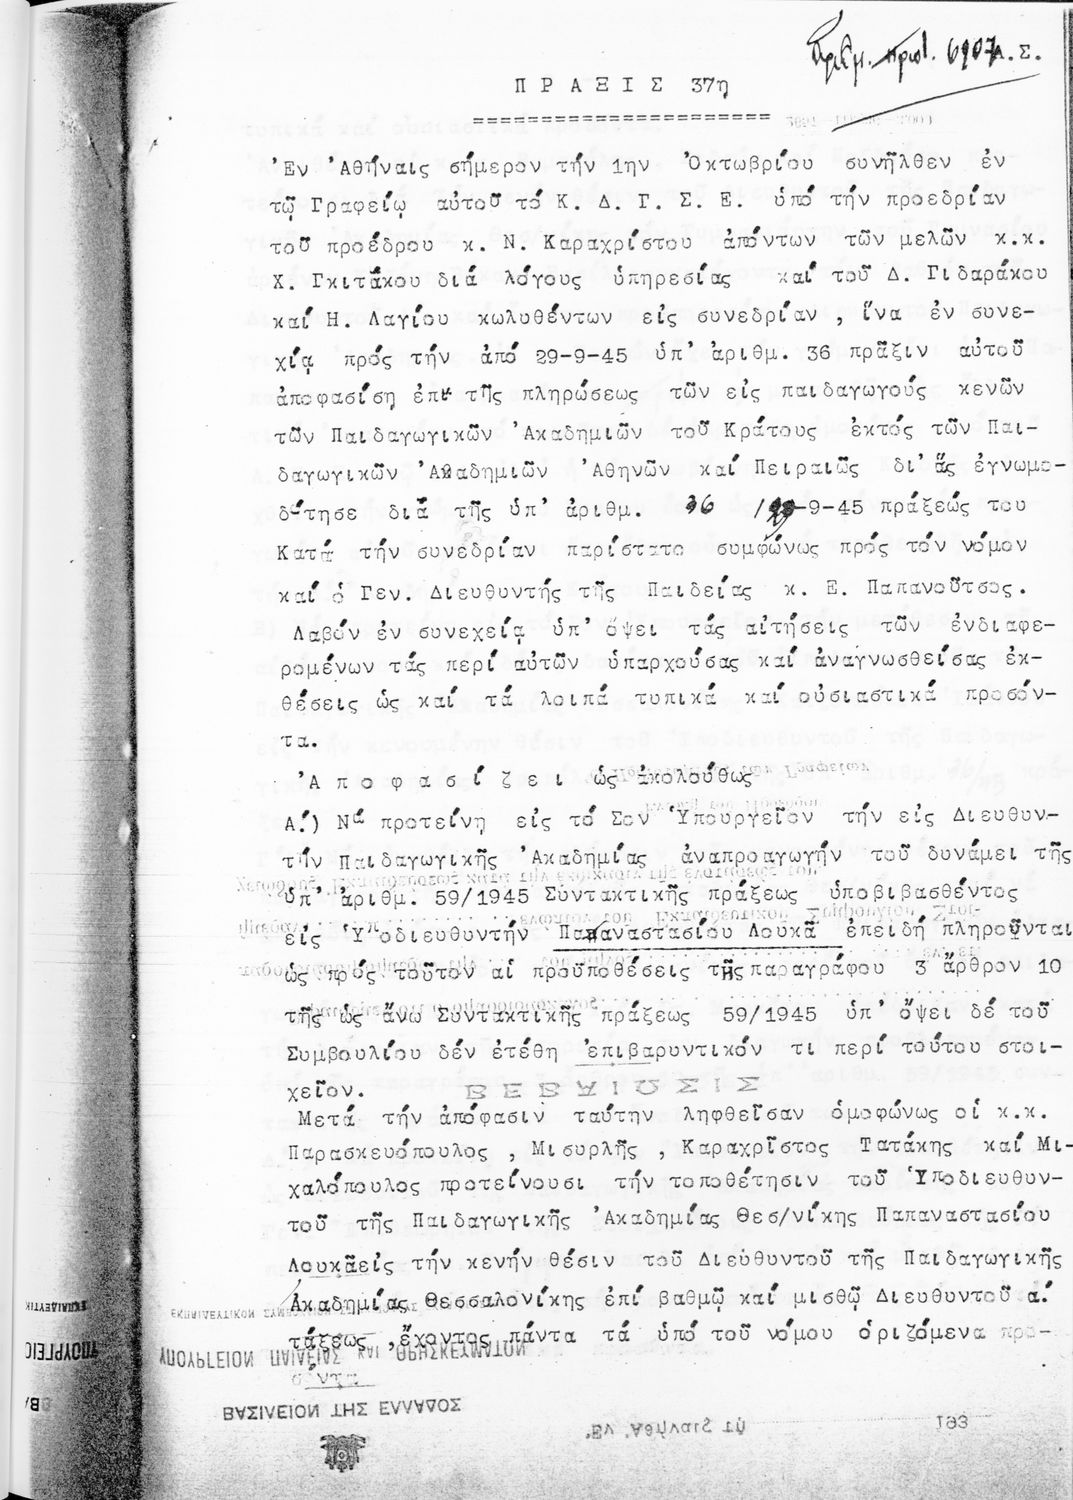 Ἀριθμ. πρωτ. 6907 Α.Σ.
Π Ρ Α Ξ Ι Σ 37η
======================
Ἐν Ἀθήναις σήμερον τήν 1ην Ὀκτωβρίου συνῆλθεν ἐν
τῷ Γραφείῳ αὐτοῦ τό Κ. Δ. Γ. Σ. Ε. ὑπό τήν προεδρίαν
τοῦ προέδρου κ. Ν. Καραχρίστου ἀπόντων τῶν μελῶν κ.κ.
Χ. Γκιτάκου διά λόγους ὑπηρεσίας καί τοῦ Δ. Γιδαράκου
καί Η. Λαγίου κωλυθέντων εἰς συνεδρίαν , ἵνα ἐν συνε-
χίᾳ πρός τήν ἀπό 29-9-45 ὑπ' ἀριθμ. 36 πρᾶξιν αὐτοῦ
ἀποφασίση ἐπί τῆς πληρώσεως τῶν εἰς παιδαγωγούς κενῶν
τῶν Παιδαγωγικῶν Ἀκαδημιῶν τοῦ Κράτους ἐκτός τῶν Παι-
δαγωγικῶν Ἀκαδημιῶν Ἀθηνῶν καί Πειραιῶς δι' ἅς ἐγνωμο-
δότησε διά τῆς ὑπ' ἀριθμ. 36 /29-9-45 πράξεώς του
Κατά τήν συνεδρίαν παρίστατο συμφώνως πρός τόν νόμον
καί ὁ Γεν. Διευθυντής τῆς Παιδείας κ. Ε. Παπανοῦτσος.
Λαβόν ἐν συνεχείᾳ ὑπ' ὄψει τάς αἰτήσεις τῶν ἐνδιαφε-
ρομένων τάς περί αὐτῶν ὑπαρχούσας καί ἀναγνωσθείσας ἐκ-
θέσεις ὡς καί τά λοιπά τυπικά καί οὐσιαστικά προσόν-
τα.
Ἀ π ο φ α σ ί ζ ε ι ὡς ἀκολούθως
Α.) Νά προτείνη εἰς τό Σον Ὑπουργεῖον τήν εἰς Διευθυν-
τήν Παιδαγωγικῆς Ἀκαδημίας ἀναπροαγωγήν τοῦ δυνάμει τῆς
ὑπ' ἀριθμ. 59/1945 Συντακτικῆς πράξεως ὑποβιβασθέντος
εἰς Ὑποδιευθυντήν Παπαναστασίου Λουκᾶ ἐπειδή πληροῦνται
ὡς πρός τοῦτον αἱ προϋποθέσεις τῆς παραγράφου 3 ἄρθρον 10
τῆς ὡς ἄνω Συντακτικῆς πράξεως 59/1945 ὑπ' ὄψει δέ τοῦ
Συμβουλίου δέν ἐτέθη ἐπιβαρυντικόν τι περί τούτου στοι-
χεῖον.
Μετά τήν ἀπόφασιν ταύτην ληφθεῖσαν ὁμοφώνως οἱ κ.κ.
Παρασκευόπουλος , Μισυρλῆς , Καραχρῖστος Τατάκης καί Μι-
χαλόπουλος προτείνουσι τήν τοποθέτησιν τοῦ Ὑποδιευθυν-
τοῦ τῆς Παιδαγωγικῆς Ἀκαδημίας Θεσ/νίκης Παπαναστασίου
Λουκᾶ εἰς τήν κενήν θέσιν τοῦ Διευθυντοῦ τῆς Παιδαγωγικῆς
Ἀκαδημίας Θεσσαλονίκης ἐπί βαθμῷ καί μισθῷ Διευθυντοῦ α.
τάξεως ,ἔχοντος πάντα τά ὑπό τοῦ νόμου ὁριζόμενα προ-
σόντα
ΒΕΒΑΙΩΣΙΣ
ΥΠΟΥΡΓΕΙΟΝ ΠΑΙΔΕΙΑΣ ΚΑΙ ΘΡΗΣΚΕΥΜΑΤΩΝ
ΒΑΣΙΛΕΙΟΝ ΤΗΣ ΕΛΛΑΔΟΣ
Ἐν Ἀθήναις τῇ 193